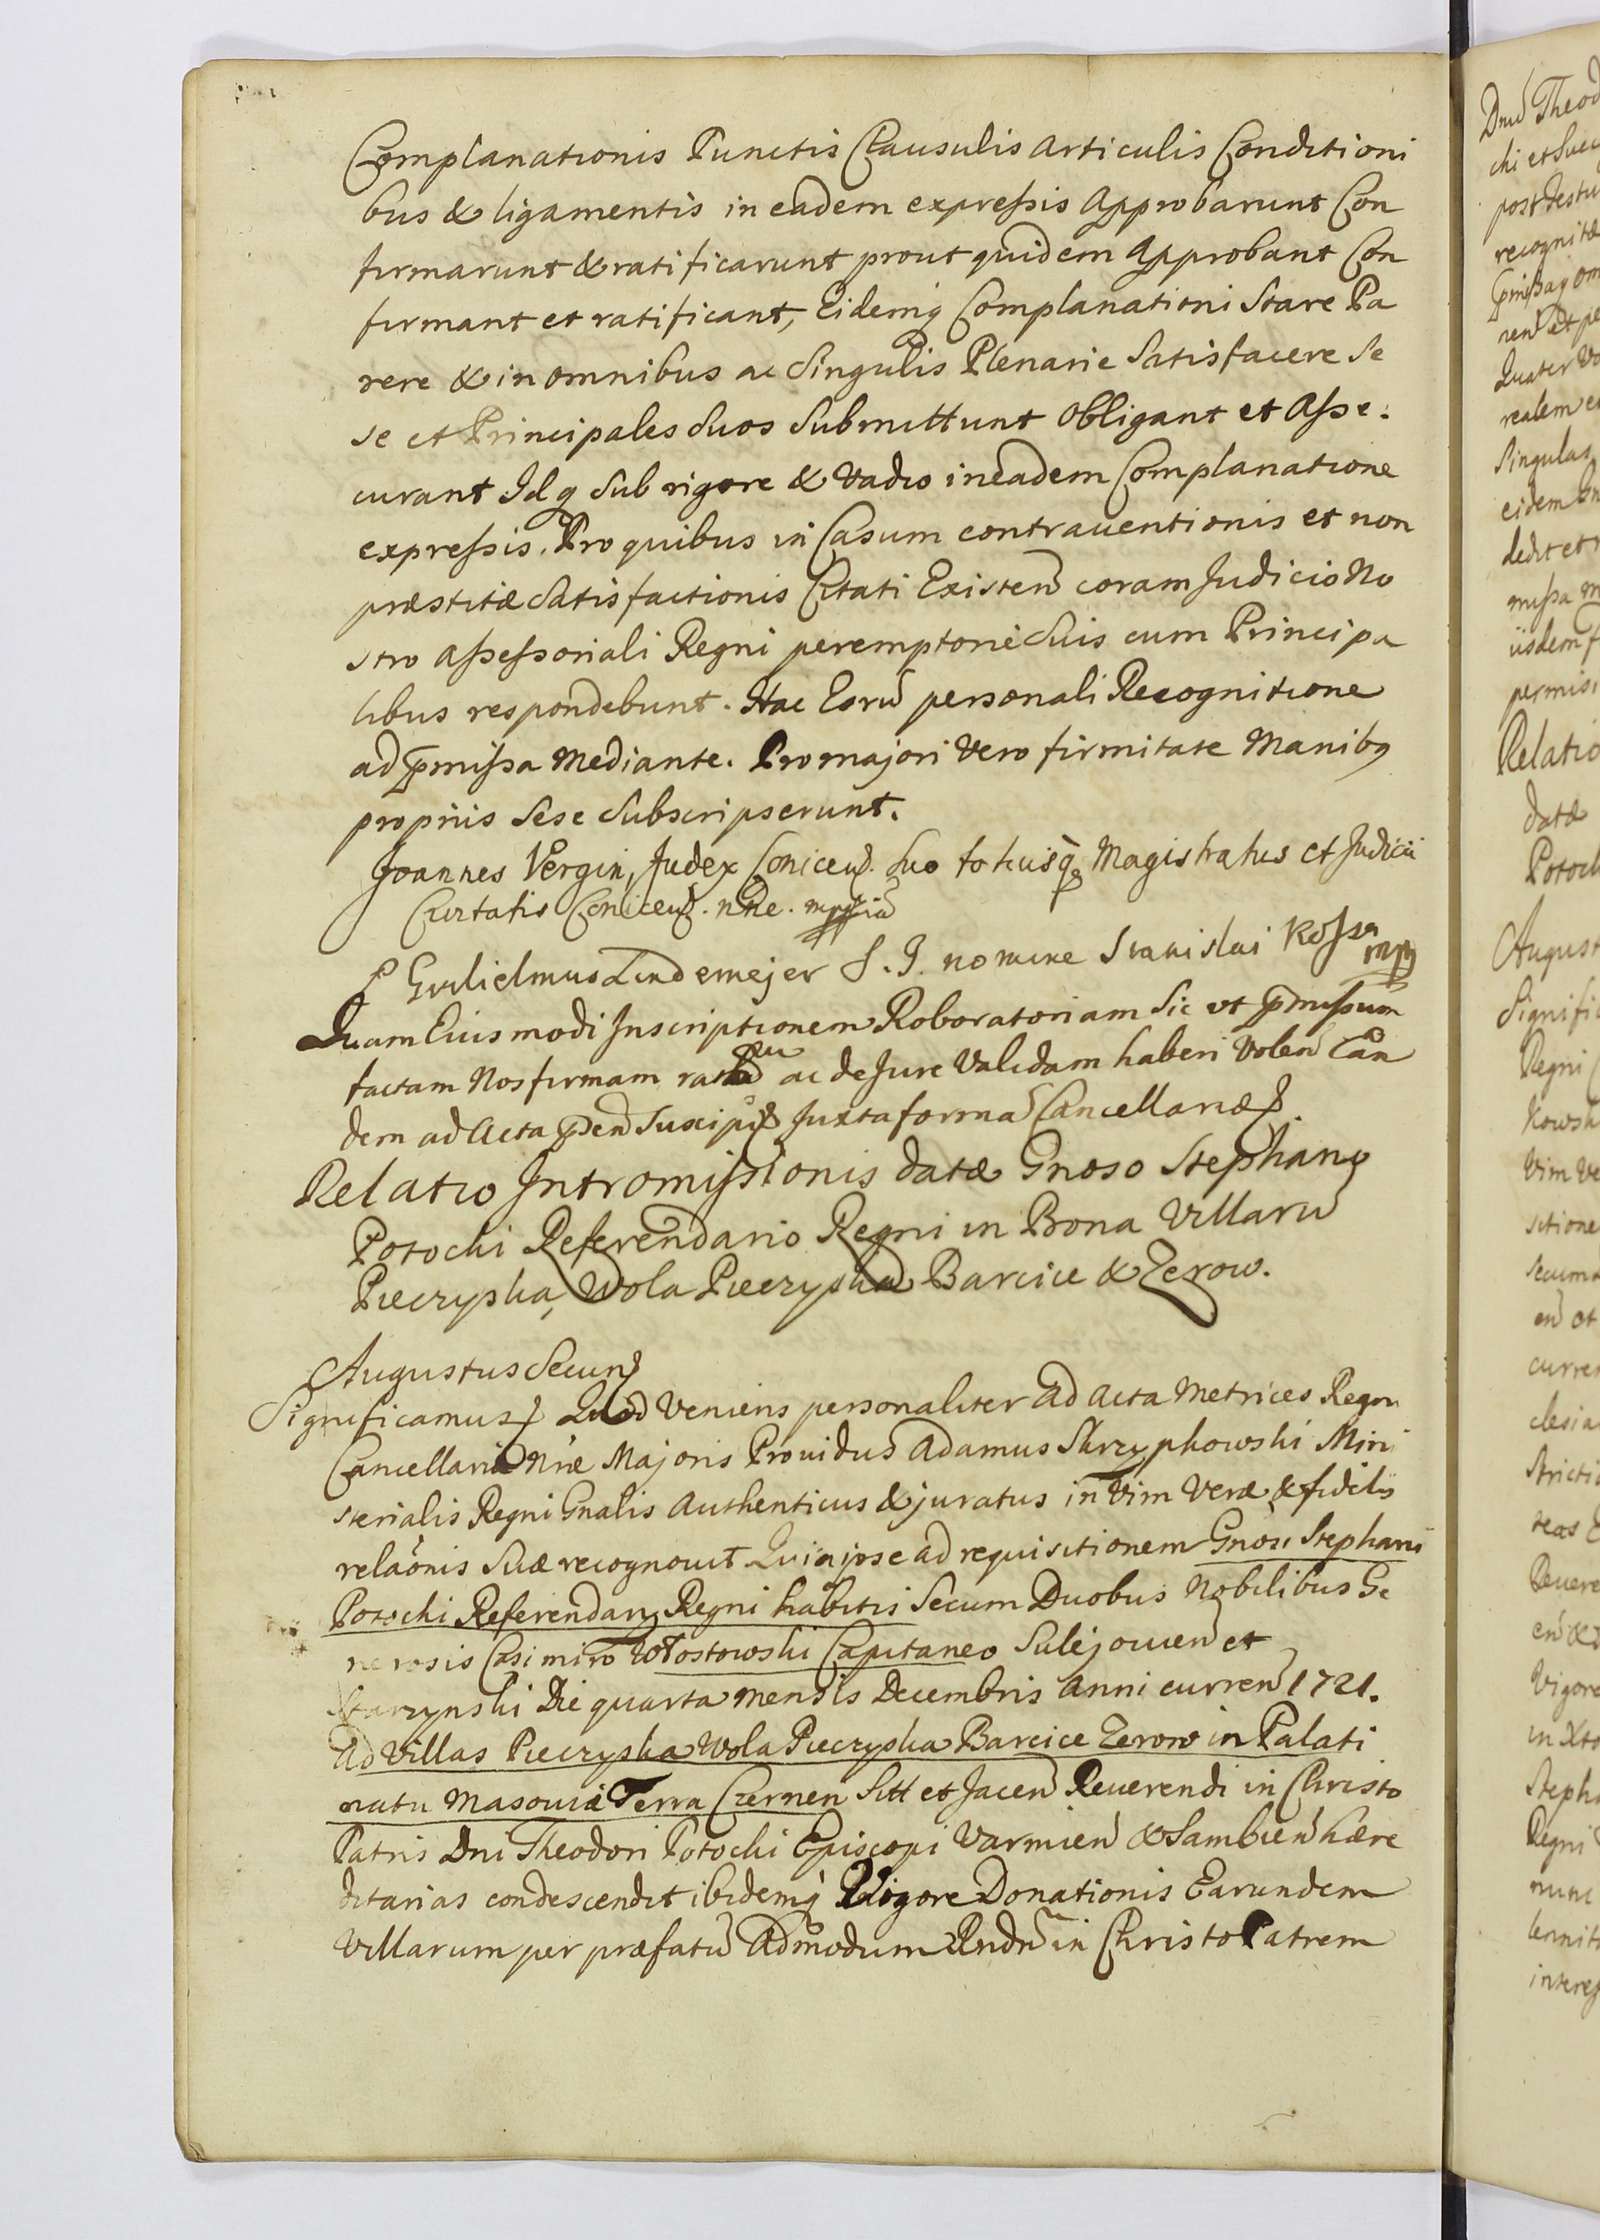 Complanationis Punctis Clausulis Articulis Conditioni
bus & ligamentis in eadem expressis Approbarunt Con
firmarunt & ratificarunt prout quidem Approbant Con
firmant et ratificant, Eidemq Complanationi Stare Pa
rere & in omnibus ac Singulis Plenarie Satisfacere Se
se et Principales Suos Submittunt Obligant et Asse:
curant Idq Sub rigore & Vadio in eadem Complanatione
expressis. Pro quibus in Casum contraventionis et non
præstitæ Satisfactionis Citati Existen coram Judicio No
stro Assessoriali Regni peremptorie Suis cum Principa
libus respondebunt. Hac Eorū personali Recognitione
ad pmissa Mediante. Pro majori Vero firmitate Manibq
propriis Sese Subscripserunt.
Joannes Vergin, Judex Conicen. suo totiusq Magistratus et Judicii
Civitatis Conicen. nne. mppria
P Gvilielmus Lindemejer S. J. nomine Stanislai Kossa mpp
Quam Eius modi Inscriptionem Roboratoriam Sic ut pmissum
factam Nos firmam ratam ac de Jure Validam haberi Volen Ean
dem ad Acta pñ Suscipi Juxta formā Cancellariæ
Relatio Intromissionis datæ Gnoso Stephano
Potocki Referendario Regni in Bona Villarū
Piecryska, Wola Piecryska Barcice & Zerow.
Augustus Secund
Significamus Quod Veniens personaliter ad Acta Metrices Regni
Cancellariæ Nræ Majoris Providus Adamus Skrzypkowski Mini
sterialis Regni Gnalis Authenticus & juratus in Vim Veræ & fidelis
relaonis Suæ recognovit Quia ipse ad requisitionem Gnosi Stephani
Potocki Referendarij Regni habitis Secum Duobus Nobilibus Ge
nerosis Casimiro Włostowski Capitaneo Sulejovien et
Starzynski Die quarta mensis Decembris Anni curren 1721.
Ad Villas Piecryska Wola Piecryska Barcice Zerow in Palati
natu Masoviæ Terra Czernen Sitt et Jacen Reverendi in Christo
Patris Dni Theodori Potocki Episcopi Varmien & Sambien hære
ditarias condescendit ibidemq Vigore Donationis Earundem
Villarum per præfatū Admodum Rndū in Christo Patrem